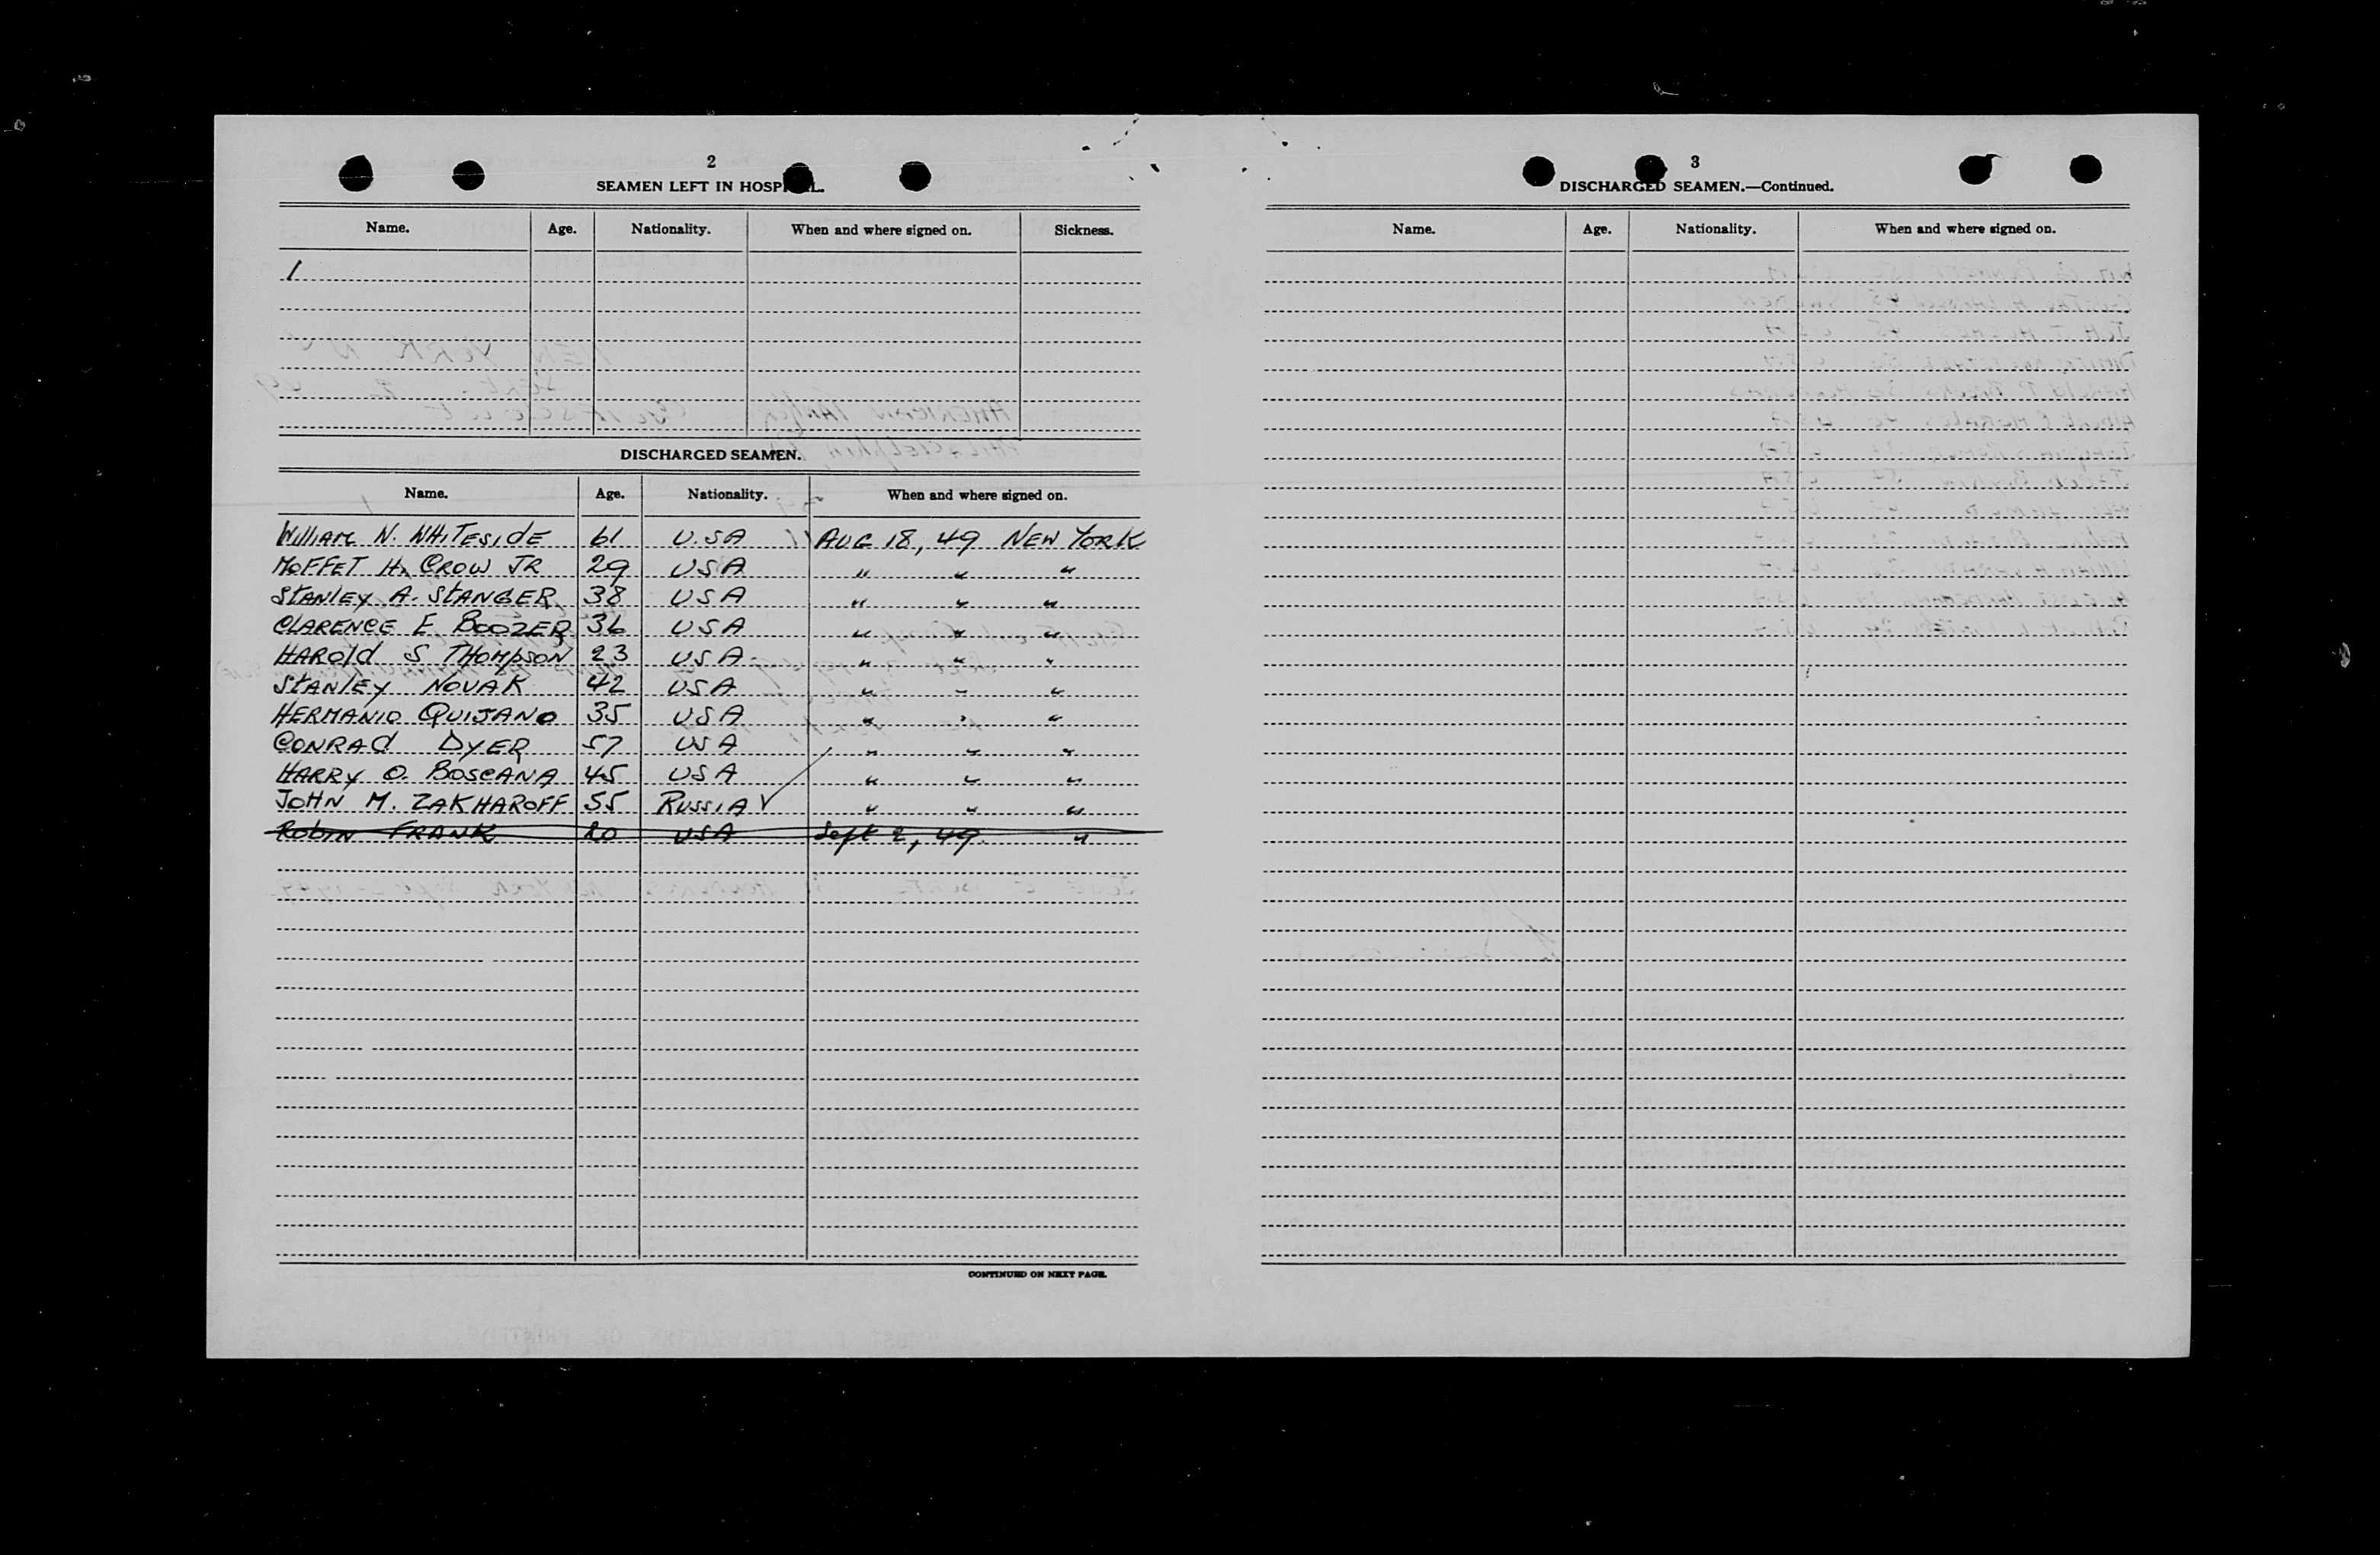 2
SEAMEN LEFT IN HOSPITAL.
Name. Age. Nationality. When and where signed on. Sickness.
1
DISCHARGED SEAMEN.
Name. Age. Nationality. When and where signed on.
William N. WHITESIDE 61 U.SA AUG 18, 49 NEW YORK
MOFFET H. CROW JR 29 USA " " "
STANLEY A. STANGER 38 USA " " "
CLARENCE E BOOZER 36 USA " " "
HAROLD S THOMPSON 23 USA " " "
STANLEY NOVAK 42 USA " " "
HERMANIO QUIJANO 35 USA " " "
CONRAD DYER 57 USA " " "
HARRY O. BOSCANA 45 USA " " "
JOHN M. ZAKHAROFF 55 RUSSIA ✓ " " "
ROBIN FRANK 20 USA Sept 2, 49 "
CONTINUED ON NEXT PAGE.
3
DISCHARGED SEAMEN.—Continued.
Name. Age. Nationality. When and where signed on.